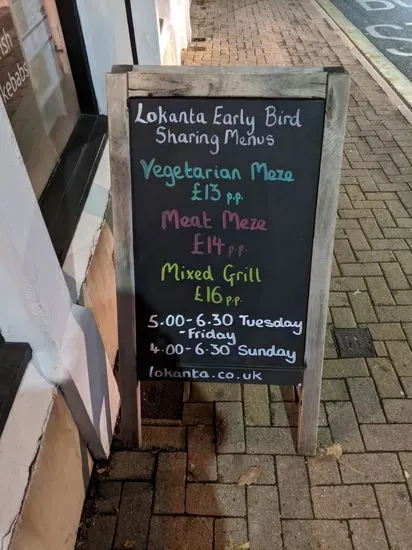 kebabs
Lokanta Early Bird
Sharing Menus
Vegetarian Meze
£13 p.p.
Meat Meze
£14 p.p.
Mixed Grill
£16 p.p.
5.00-6.30 Tuesday
-Friday
4.00-6.30 Sunday
lokanta.co.uk